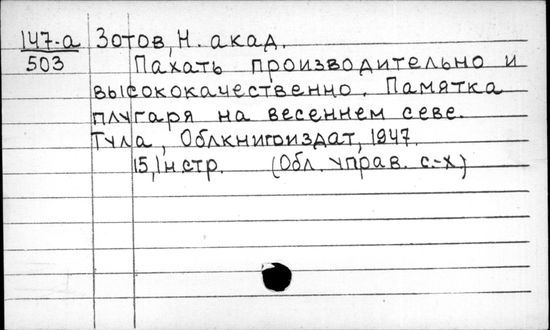 147-а Зотов, Н. акад.
503
Пахать производительно и
высококачественно. Памятка
плугаря на весеннем севе.
Тула, Облкнигоиздат, 1947.
15,1н стр. (Обл. управ. с.-х)